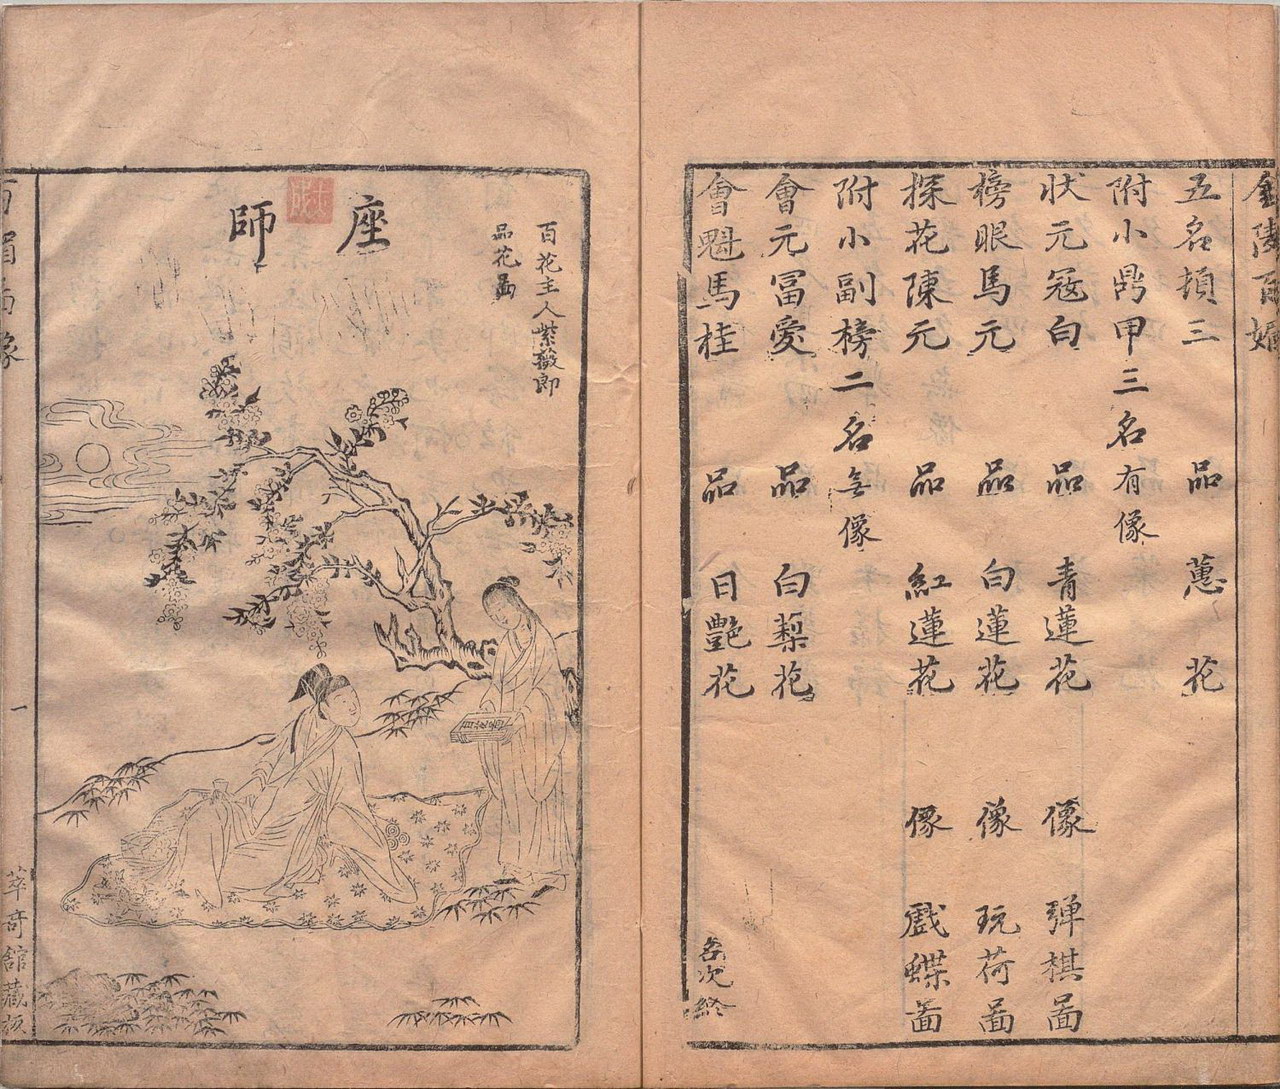 金陵百媚
五名頓三 品 蕙花
附小鼎甲三名有像
狀元冦白 品 青蓮花 像 弾棋啚
榜眼馬元 品 白蓮花 像 玩荷啚
探花陳元 品 紅蓮花 像 戲蝶啚
附小副榜二名无像
會元冨愛 品 白梨花
會魁馬桂 品 日艷花
名次終
百花主人紫薇郎
品花啚
座師
一
萃奇館藏板